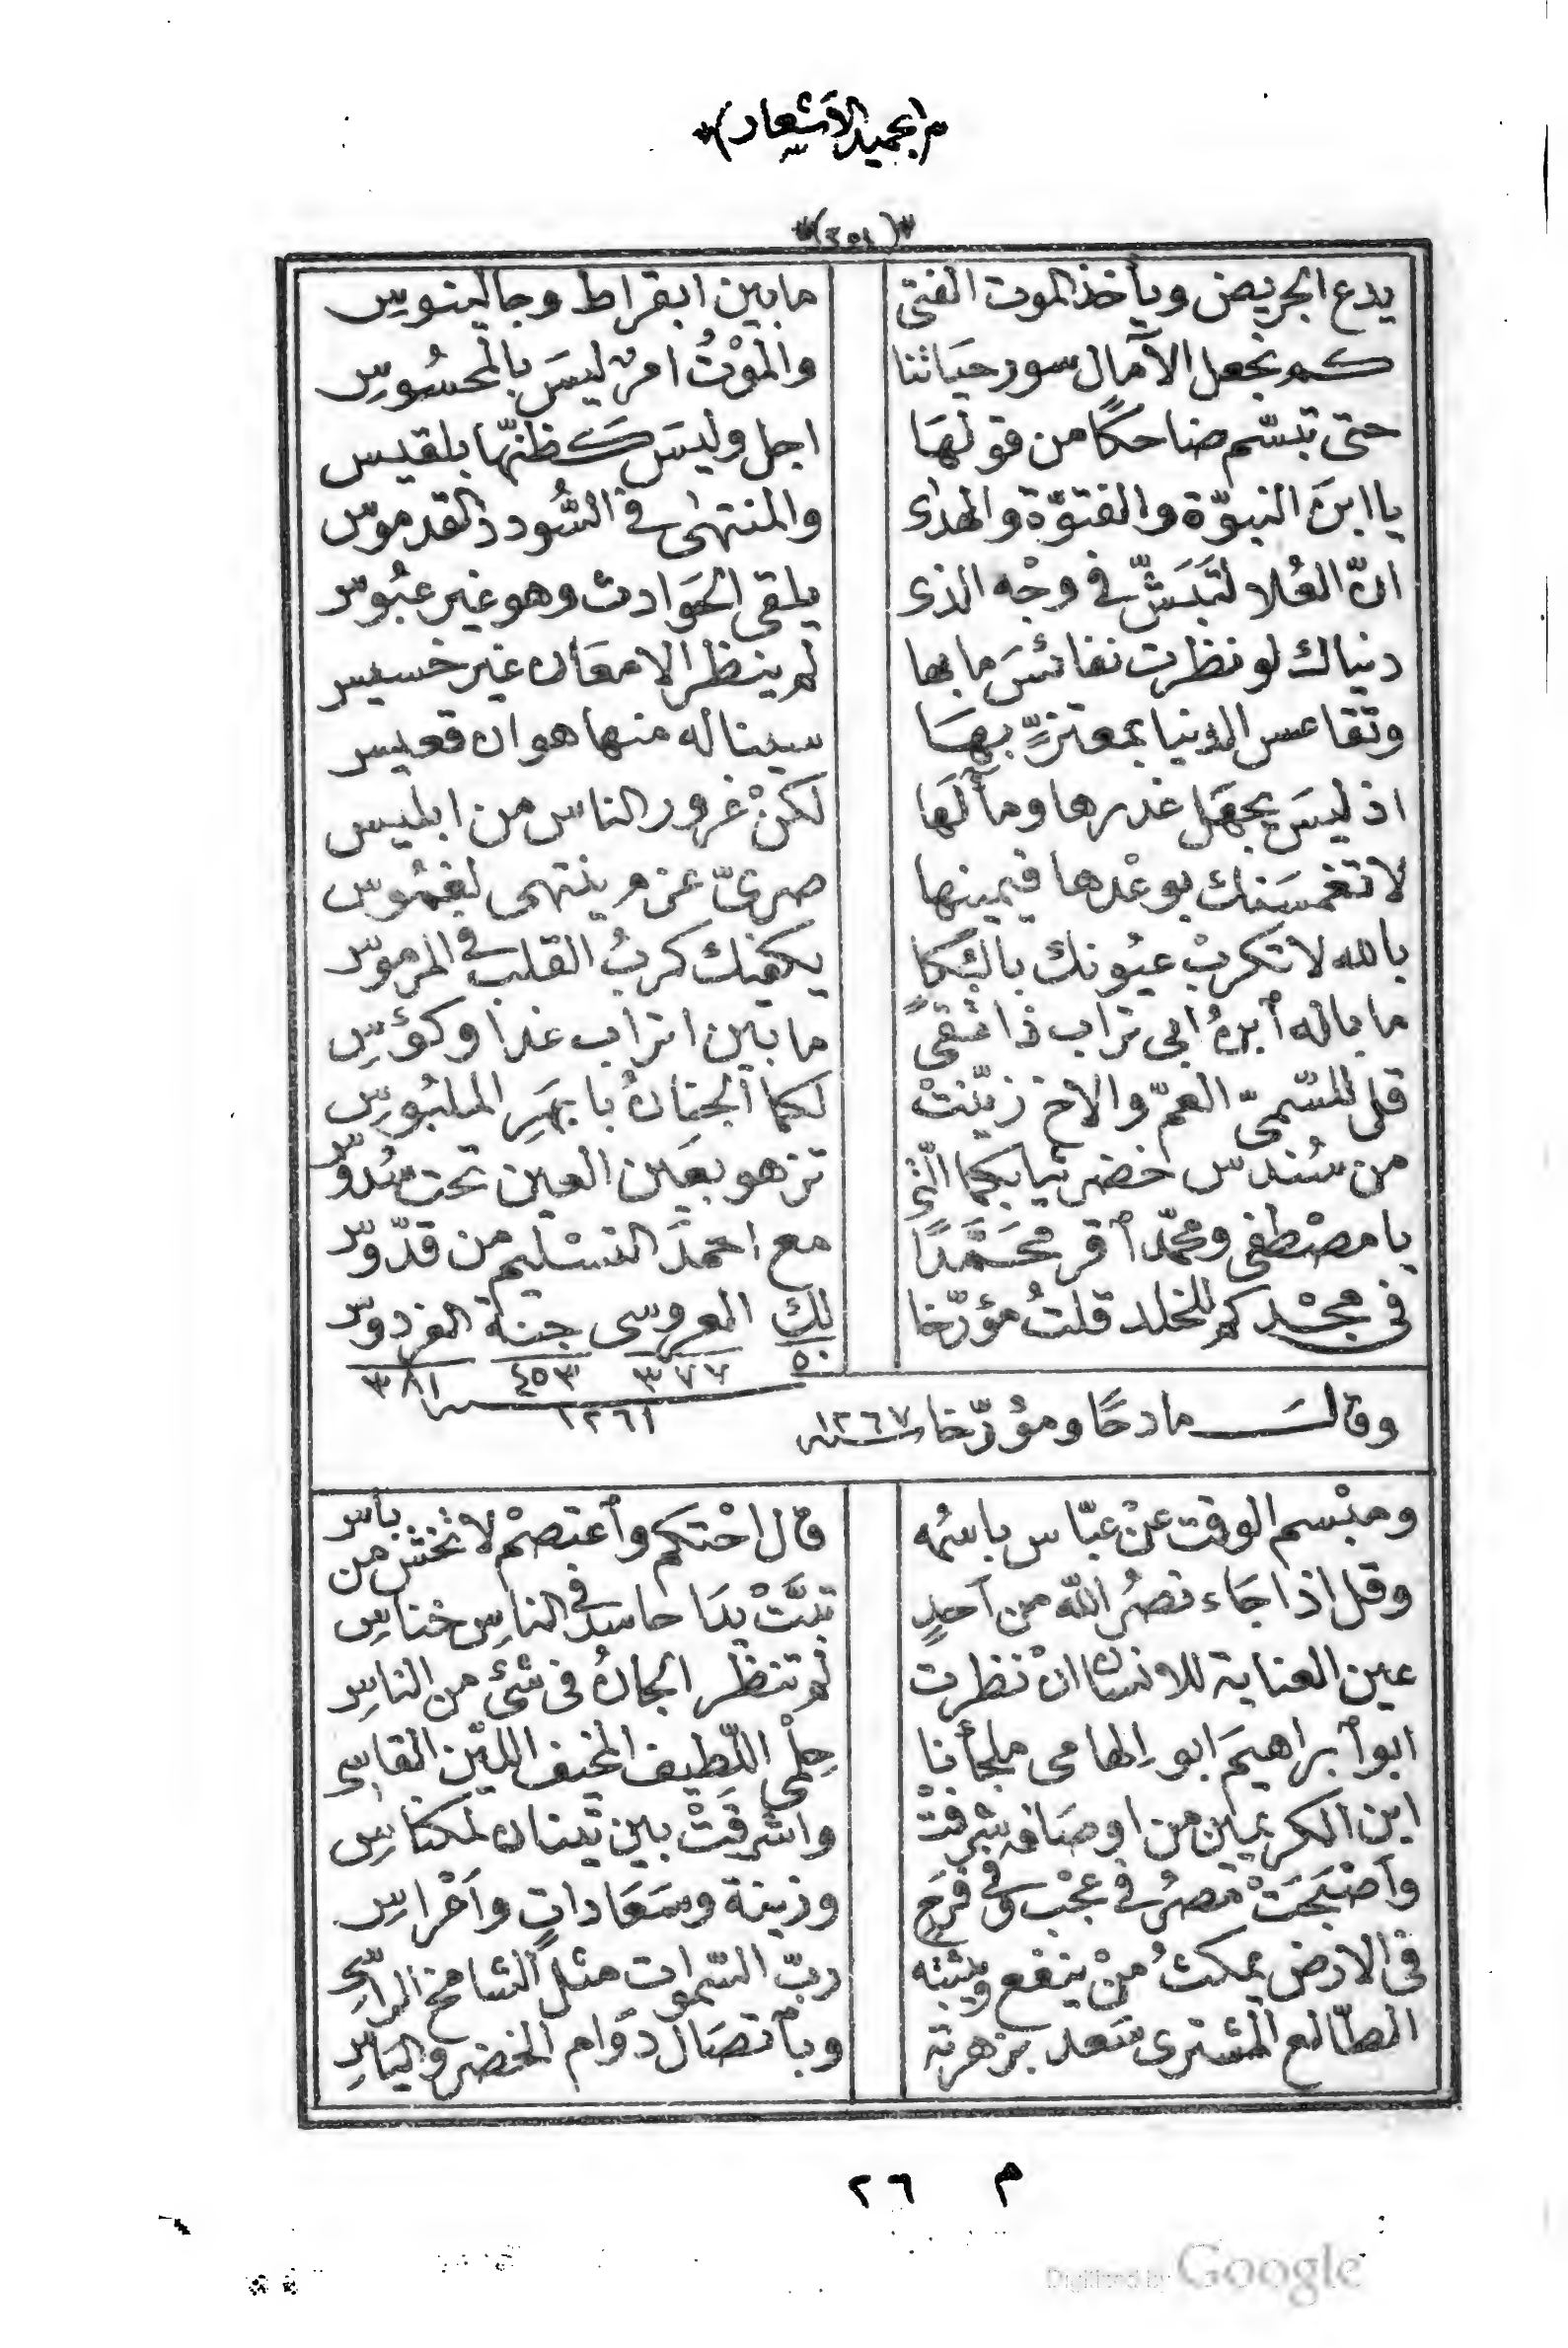 (بحميد الأشعار)
(٢٠١)
يدع الجريض وياخذ الموت الفتى مابين ابقراط وجالينوس
كم نجعل الآمال سور حيَاتنا والمَوْتُ امر ليسَ بالمحسُوسِ
حتى تبسّم ضاحكًا من قولهَا اجل وليسَ كظنّها بلقيس
ياابن النبوّة والفتوّة والهدٰى والمنتهٰى فى السُّودد القدموس
انّ العُلا لتَبَشّ فى وجْه الذى يلقى الحَوادث وهو غير عبُوس
دنياك لو نظرت نفائسَ مابها لم ينظر الامعَان غير خسيس
وتقاعس الدنيا بمعتزٍّ بهَا سيناله منها هوان قعيس
اذ ليسَ يجهَل غدرها ومآلهَا لكنْ غرور الناس من ابليس
لا تغمسَنك بوعْدها فيمينها صرىّ عزم ينتهى لغمُوس
بالله لا تكربْ عيُونك بالبُكا يكفيك كربُ القلب فى المرموس
ما باله أبنُ ابى تراب ذا تقى ما بَين اتراب غدا وكؤسِ
قل للسّمىّ العمّ والاخ زيّنتْ لكما الجنانُ بابهَرِ الملبُوسِ
من سُندس خضر ثيابكما الّتى تزهو بعَين العين تحت سُدوس
يا مصْطفى ومحمّد أقر محَمَّدًا مع احمدَ التسْليم من قدّوس
فى مجْد كم للخلد قلتُ مؤرّخا لك العروسى جنة الفردوس
٥٠ ٣٧٧ ٤٥٣ ٣٨١
١٢٦١
وقالَ مادحًا ومؤرّخا سنة ١٢٦٧
ومبْسم الوقت عنْ عبّاس باسُمه قال احْتكم وأعتصمْ لا تخْش من باس
وقل اذا جَاء نصرُ اللّه من أحدٍ تبَّتْ يدَا حاسد فى الناسِ خناسِ
عين العناية للانسان انْ نظرت لم تنظر الجانُ فى شئ من الناسِ
ابو أبراهيمَ ابو الهامى ملجأنا حِلْمى اللّطيف المخيف الليّن القاسِى
ابن الكريمين من اوصَافه شرفتْ واشرقَتْ بين تيتان لمكناسِ
وأصْبحَتْ مصرُ فى عجْب وفى فرَحٍ وزينة وسَعَاداتٍ وأعْراسِ
فى الارض يمكثُ منْ ينفع ويثبته ربّ السّموات مثل الشامخ الراسِى
الطّالع المشترى سَعد بزهرته وبأتصَال دوَام الخضر والياسِ
م ٢٦
Digitized by Google